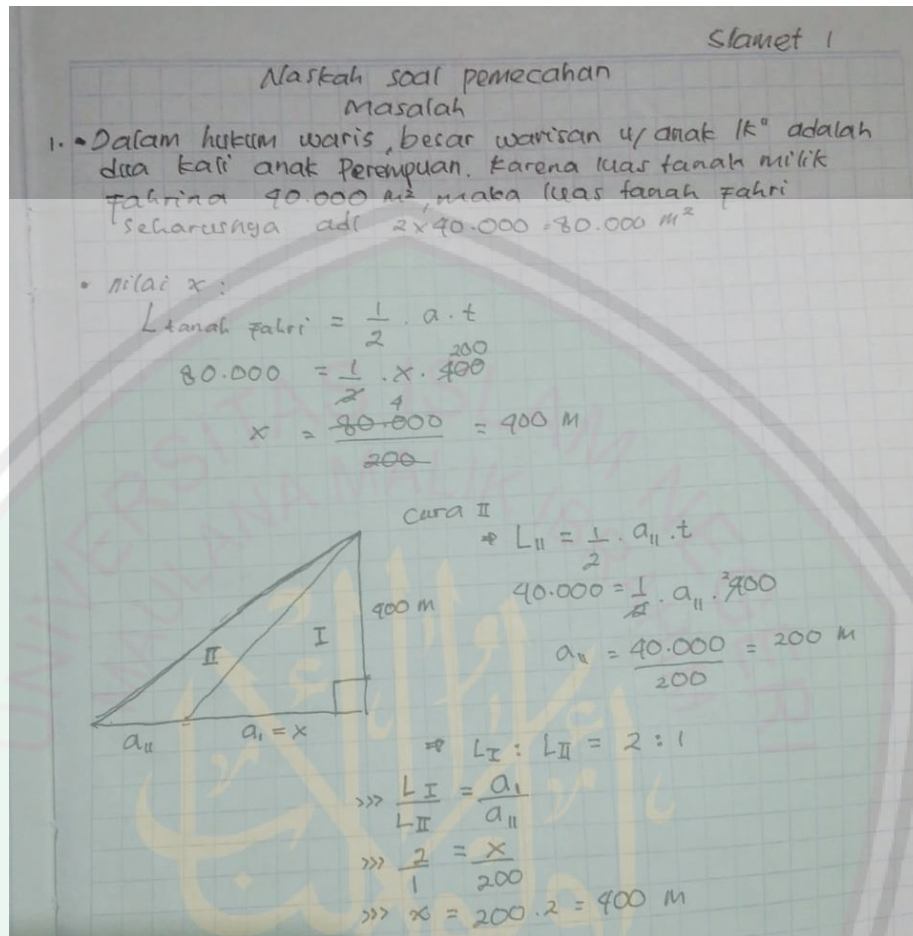 Slamet 1
Naskah soal pemecahan
Masalah
1. • Dalam hukum waris, besar warisan u/ anak lk° adalah
dua kali anak Perempuan. Karena luas tanah milik
Fahrina 40.000 m², maka luas tanah Fahri
seharusnya adl 2 x 40.000 = 80.000 m²
• nilai x :
L tanah Fahri = 1/2 . a . t
80.000 = 1/2 . x . 400 200
x = 80.000/200 4 = 400 M
Cara II
⇒ L II = 1/2 . a II . t
40.000 = 1/2 . a II . 400 2
a II = 40.000/200 = 200 M
400 m
I
II
a II
a I = x
⇒ L I : L II = 2 : 1
>>> L I/L II = a I/a II
>>> 2/1 = x/200
>>> x = 200 . 2 = 400 M
UNIVERSITAS ISLAM NEGERI
MAULANA MALIK IBRAHIM